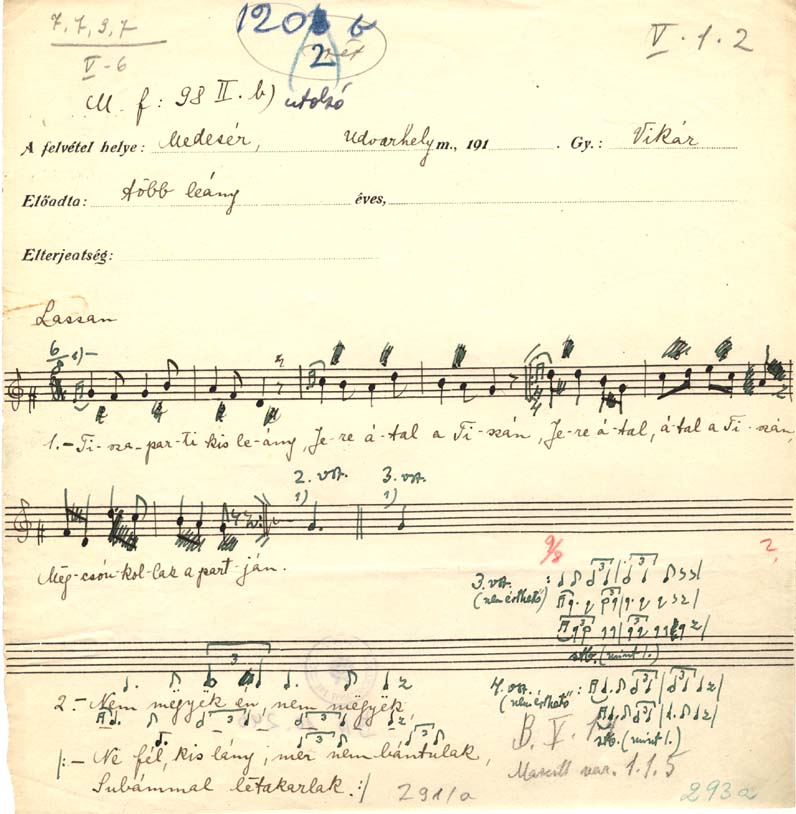 7, 7, 9, 7
V-6
120 b
2
V. 1. 2
M. f: 98 II. b) utolsó
A felvétel helye: Medesér, Udvarhely m., 191 . Gy.: Vikár
Előadta: több leány éves,
Elterjeatség:
Lassan
6/8 1)-
1.- Ti-sza-par-ti kis le-ány, Je-re á-tal a Ti-szán, Je-re á-tal, á-tal a Ti-szán,
2. vsz. 3. vsz.
1) 1)
Még-csón-kol-lak a part-ján.
9/8
2,
3. vsz. :
(nem érthető)
stb. (mint 1.)
3
4. vsz. :
(nem érthető)
stb. (mint 1.)
2.- Nem mëgyëk én, nem mëgyëk,
|:- Ne fél, kis lány, mer nem bántulak,
Subámmal létakarlak. :|
B. V.
var. 1.1.5
291/a
293a